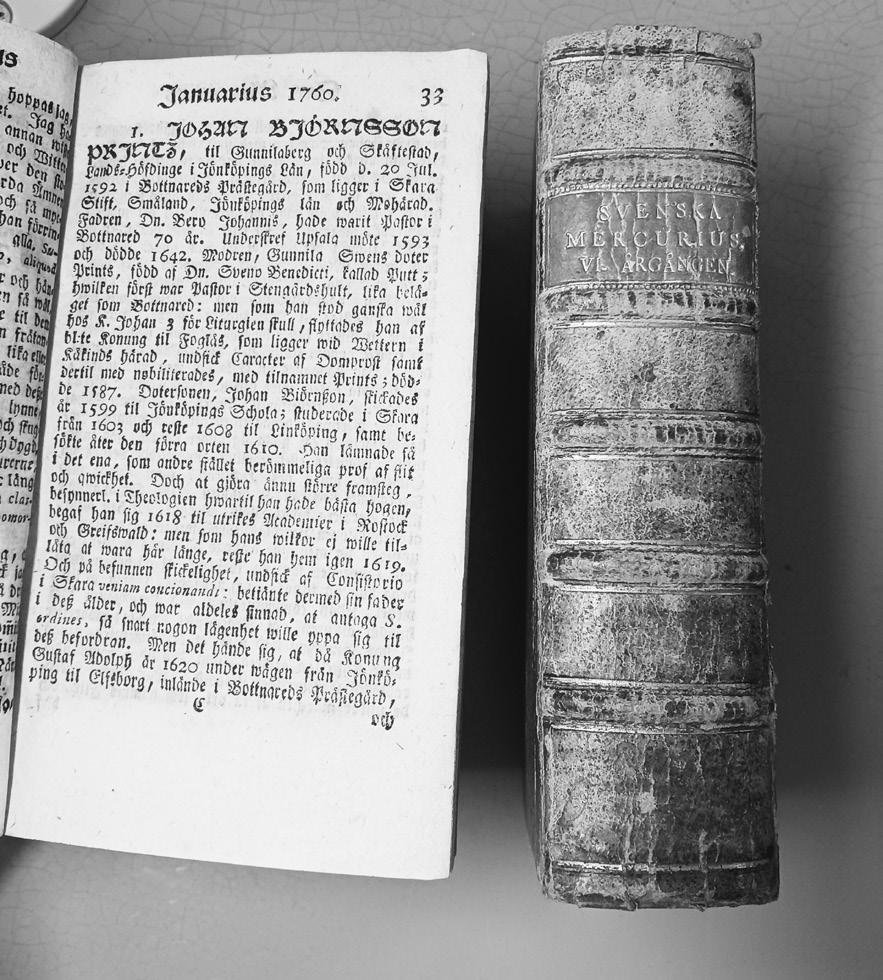 hoppas jag,
annan
och
alla,
aliquod
lynne,
Januarius 1760. 33
1. JOHAN BJÖRNSSON
PRINTZ, til Gunnilaberg och Skäftestad,
Lands-Höfdinge i Jönköpings Län, född d. 20 Jul.
1592 i Bottnareds Prästegård, som ligger i Skara
Stift, Småland, Jönköpings län och Mohärad.
Fadren, Dn. Bero Johannis, hade warit Pastor i
Bottnared 70 år. Underskref Upsala möte 1593
och dödde 1642. Modren, Gunnila Swens doter
Prints, född af Dn. Sveno Benedicti, kallad Putt;
hwilken först war Pastor i Stengårdshult, lika belä-
get som Bottnared: men som han stod ganska wäl
hos K. Johan 3 för Liturgien skull, flyttades han af
bl:te Konung til Foglås, som ligger wid Wettern i
Kåkinds härad, undfick Caracter af Domprost samt
dertil med nobiliterades, med tilnamnet Prints; död-
de 1587. Dotersonen, Johan Biörnßon, skickades
år 1599 til Jönköpings Schola; studerade i Skara
från 1603 och reste 1608 til Linköping, samt be-
sökte åter den förra orten 1610. Han lämnade så
i det ena, som andre stället berömmeliga prof af flit
och qwickhet. Doch at gjöra ännu större framsteg,
besynnerl. i Theologien hwartil han hade bästa hogen,
begaf han sig 1618 til utrikes Academier i Rostock
och Greifswald: men som hans wilkor ej wille til-
låta at wara här länge, reste han hem igen 1619.
Och på befunnen skickelighet, undfick af Consistorio
i Skara veniam concionandi: betiänte dermed sin fader
i deß ålder, och war aldeles sinnad, at antaga S.
ordines, så snart nogon lägenhet wille yppa sig til
deß befordran. Men det hände sig, at då Konung
Gustaf Adolph år 1620 under wägen från Jönkö-
ping til Elfsborg, inlände i Bottnareds Prästegård,
C
och
SVENSKA
MERCURIUS.
VI. ÅRGÅNGEN.